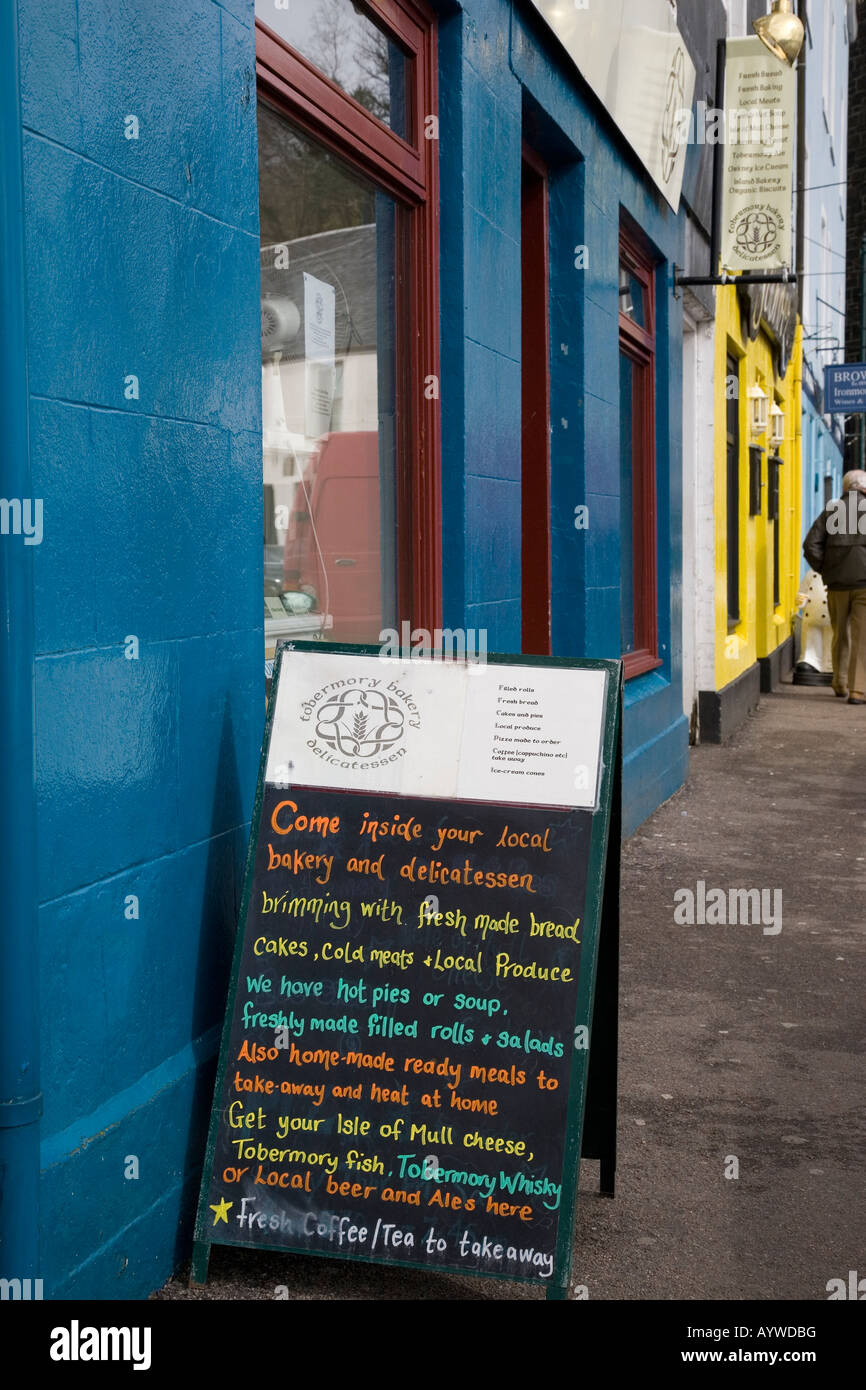 Fresh Bread
Fresh Baking
Local Meats
Mull Cheese
Tobermory
Orkney Ice Cream
Island Bakery
Organic Biscuits
tobermory bakery
delicatessen
BROW
Ironmo
Wines &
tobermory bakery
delicatessen
Filled rolls
Fresh bread
Cakes and pies
Local produce
Pizza made to order
Coffee (cappuchino etc)
take away
Ice-cream cones
Come inside your local
bakery and delicatessen
brimming with fresh made bread
cakes, cold meats & Local Produce
We have hot pies or soup,
freshly made filled rolls & salads
Also home-made ready meals to
take-away and heat at home
Get your Isle of Mull cheese,
Tobermory fish, Tobermory Whisky
or Local beer and Ales here
Fresh Coffee/Tea to takeaway
alamy
alamy
Image ID: AYWDBG
www.alamy.com